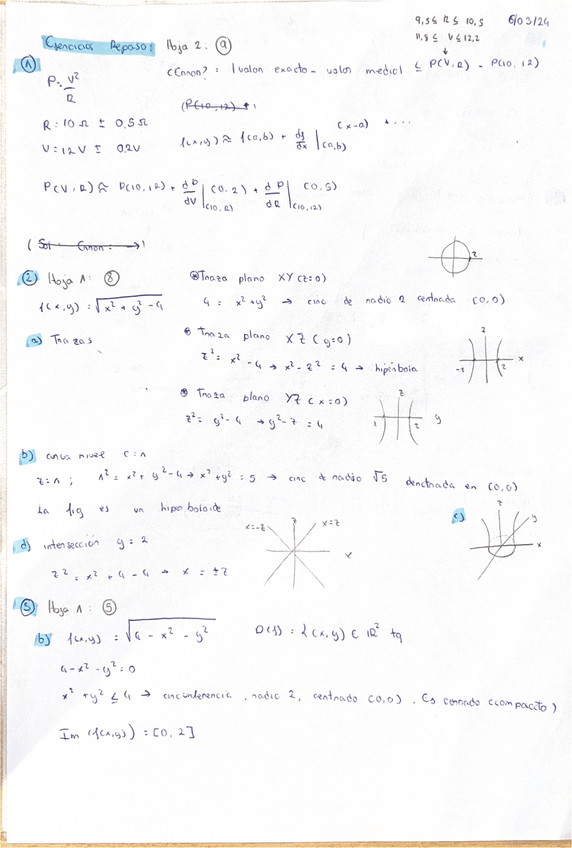 9,5 ≤ R ≤ 10,5
6/03/24
11,8 ≤ V ≤ 12,2
Ejercicios Repaso: Hoja 2: ⑨
① ¿Error? = |valor exacto - valor medio| ≤ P(V,R) - P(10,12)
P = V²/R
(P(10,12) + )
R = 10 Ω ± 0,5 Ω
V = 12V ± 0,2V
f(x,y) ≈ f(a,b) + df/dx |(a,b) (x-a) + ...
P(V,R) ≈ P(10,12) + dP/dV |(10,12) (0,2) + dP/dR |(10,12) (0,5)
(Sol: Error: → )
2
② Hoja 1: ⑧
f(x,y) = √x² + y² - 4
⊛ Traza plano XY (z=0)
4 = x² + y² → circ de radio 2 centrada (0,0)
a) Trazas
⊛ Traza plano XZ (y=0)
z² = x² - 4 → x² - z² = 4 → hipérbola
z
-2 2 x
⊛ Traza plano YZ (x=0)
z² = y² - 4 → y² - z = 4
z
2 y
b) curva nivel C = 1
z = 1 ; 1² = x² + y² - 4 → x² + y² = 5 → circ de radio √5 denctrada en (0,0)
La fig es un hiperboloide
c)
z
y
x
d) intersección y = 2
x=-z z x=z
x
z² = x² + 4 - 4 → x = ±z
⑤ Hoja 1: ⑤
b) f(x,y) = √4 - x² - y² D(f) = {(x,y) ∈ ℝ² tq
4 - x² - y² = 0
x² + y² ≤ 4 → circunferencia, radio 2, centrado (0,0). Es cerrado (compacto)
Im (f(x,y)) = [0,2]